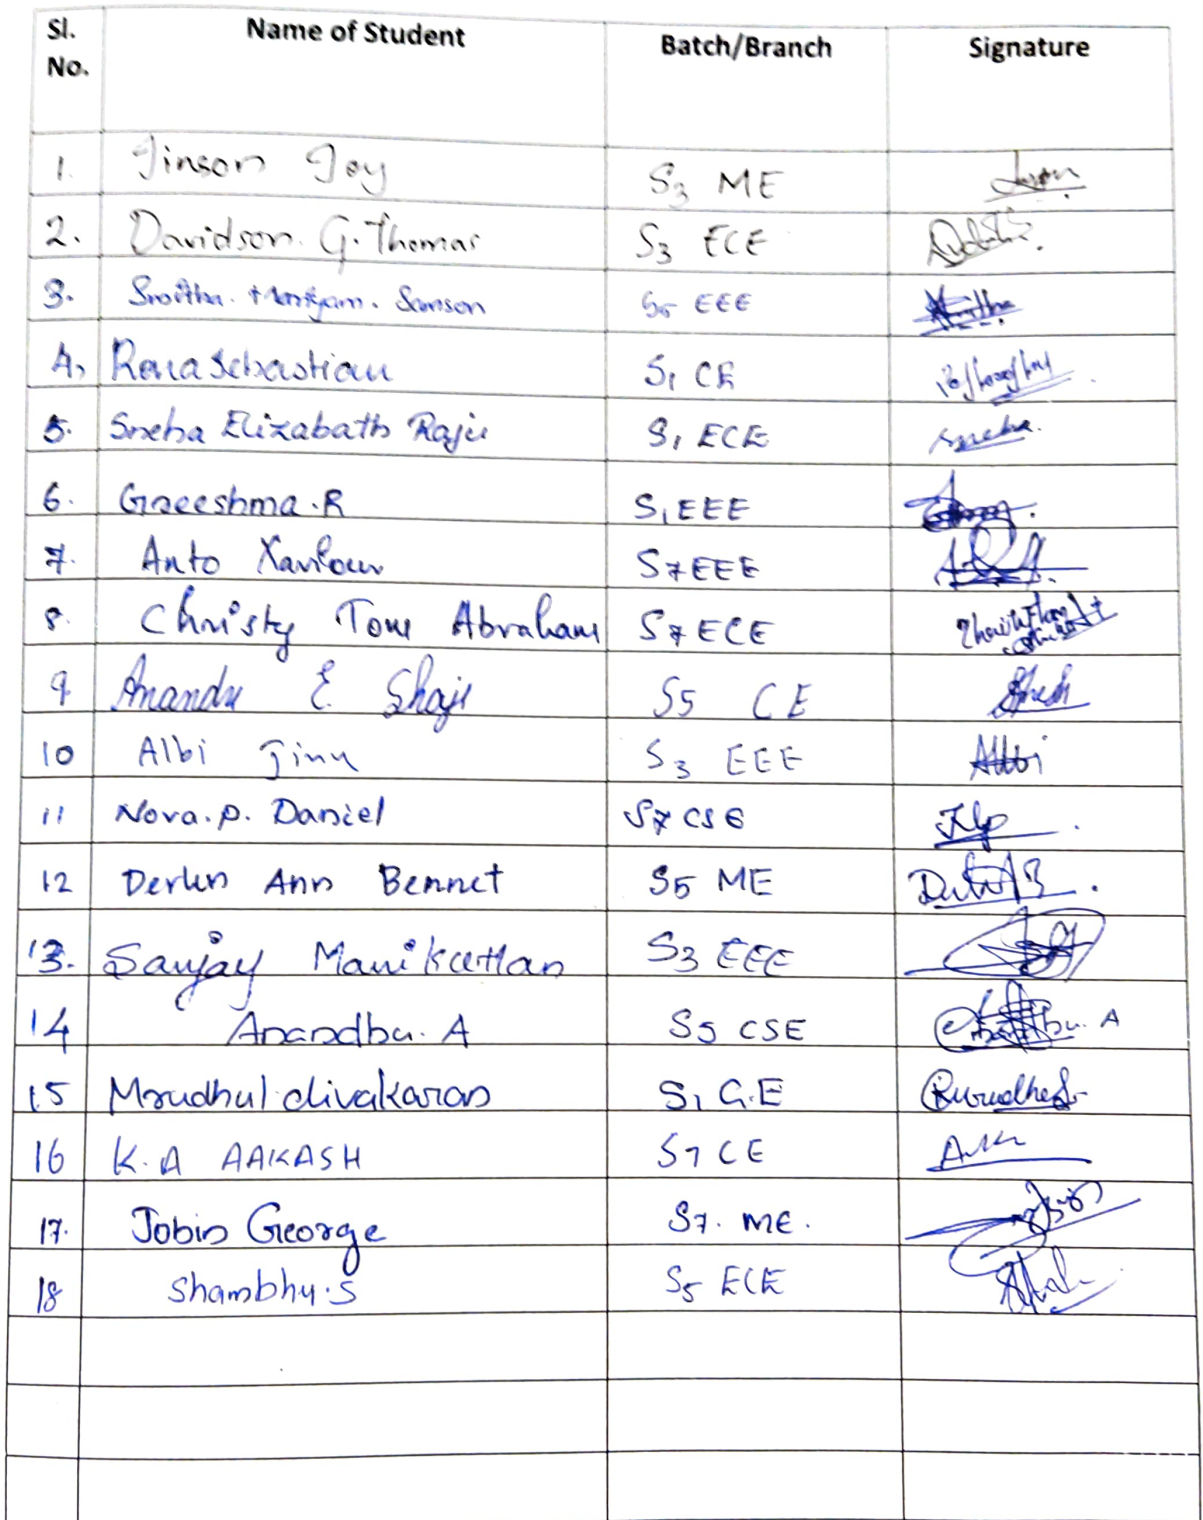 Sl. No. Name of Student Batch/Branch Signature
1. Jinson Joy S3 ME
2. Davidson. G. Thomas S3 ECE
3. Samson S5 EEE
4, Rona Sebastian S1 CE
5. Sneha Elizabath Raju S1 ECE Sneha.
6. Greeshma.R S1 EEE
7. Anto Xaviour S7 EEE
8. Christy Tom Abraham S7 ECE
9 Anandu E Shaji S5 CE
10 Albi Jinu S3 EEE Albi
11 Nova.P. Daniel S7 CSE
12 Derlin Ann Bennet S5 ME
13. Sanjay Manikuttan S3 EEE
14 Anandhu. A S5 CSE
15 Mrudhul divakaran S1 C.E
16 K.A AAKASH S7 CE
17. Jobin George S7. ME.
18 Shambhu.S S5 ECE